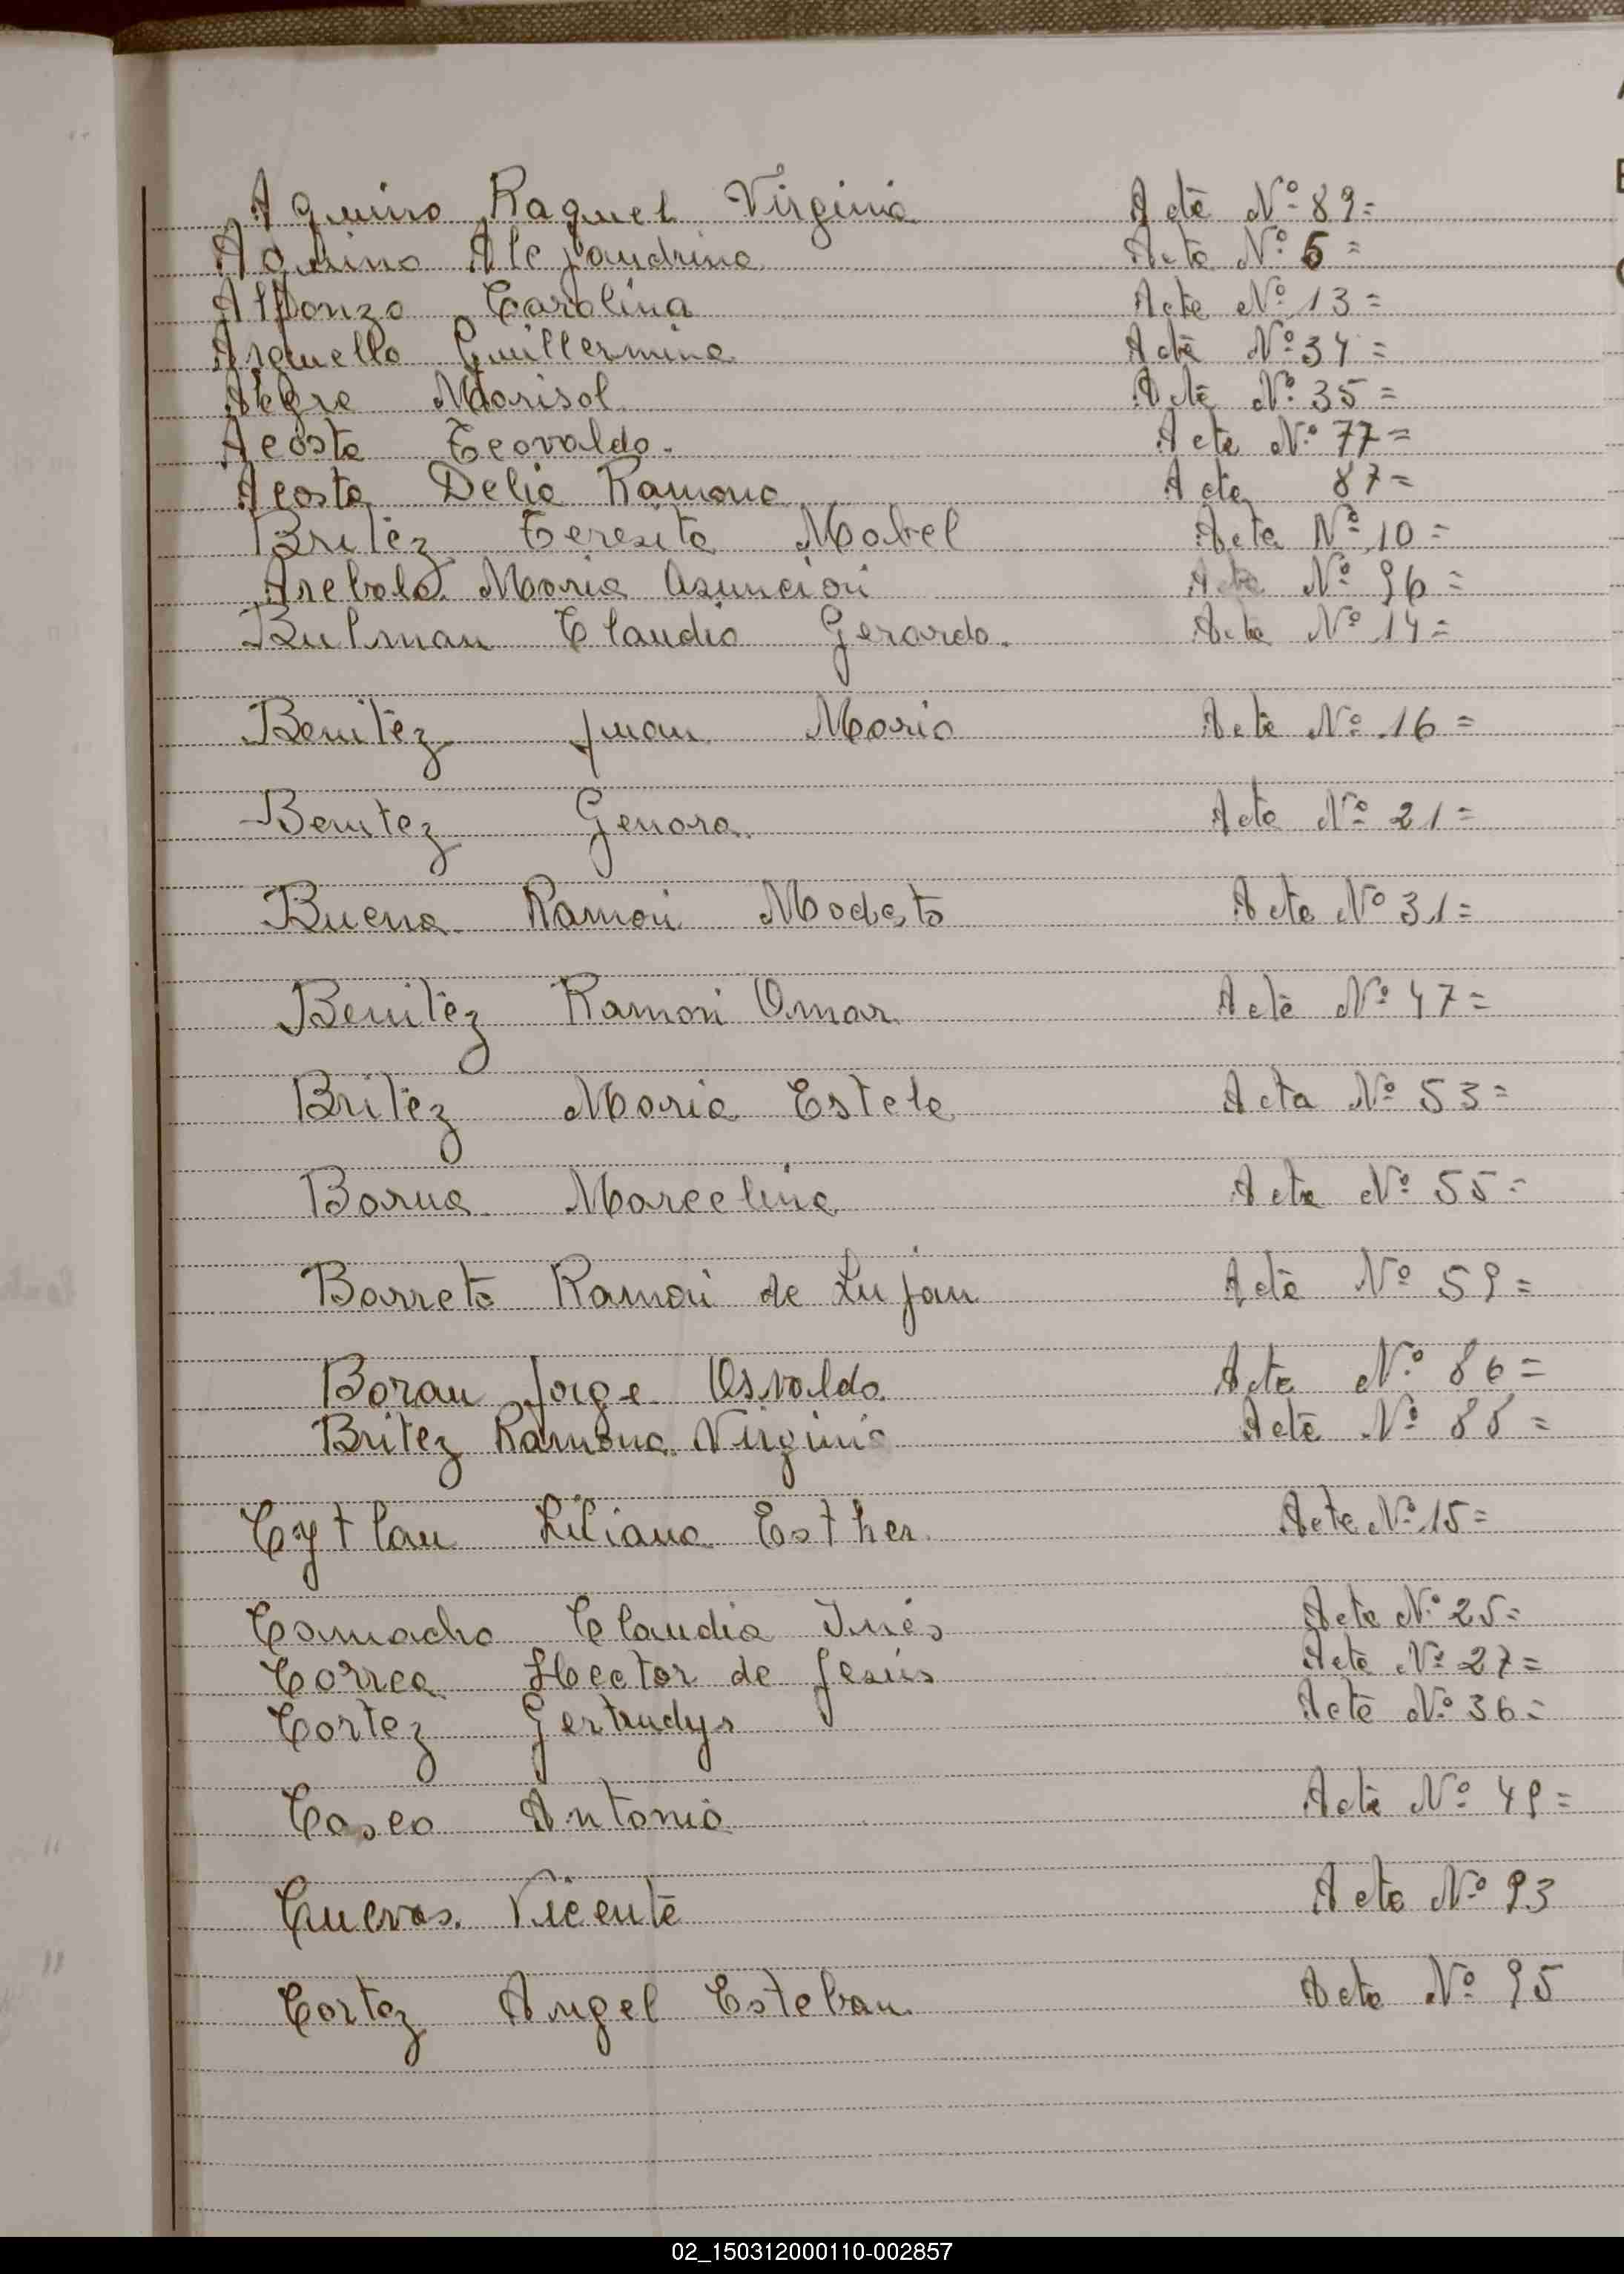 Aquino Raquel Virginia Acta Nº 89=
Aquino Alejandrina Acta Nº 6=
Alfonzo Carolina Acta Nº 13=
Arguello Guillermina Acta Nº 34=
Alegre Marisol Acta Nº 35=
Acosta Teovaldo. Acta Nº 77=
Acosta Delia Ramona Acta 87=
Britez Teresita Mabel Acta Nº 10=
Arebalo Maria Asunción Acta Nº 96=
Bulman Claudio Gerardo. Acta Nº 14=
Benitez Juan Mario Acta Nº 16=
Benitez Genara. Acta Nº 21=
Buena Ramón Modesto Acta Nº 31=
Benitez Ramón Omar Acta Nº 47=
Britez Maria Estela Acta Nº 53=
Barua Marcelina Acta Nº 55=
Barreto Ramón de Lujan Acta Nº 59=
Boran Jorge Osvaldo. Acta Nº 86=
Britez Ramona Virginia Acta Nº 88=
Cytlau Liliana Esther Acta Nº 15=
Camacho Claudia Inés Acta Nº 25=
Correa Hector de Jesús Acta Nº 27=
Cortez Gertrudys Acta Nº 36=
Casco Antonia Acta Nº 49=
Cuevas. Vicente Acta Nº 93
Cortez Angel Esteban Acta Nº 95
02_150312000110-002857